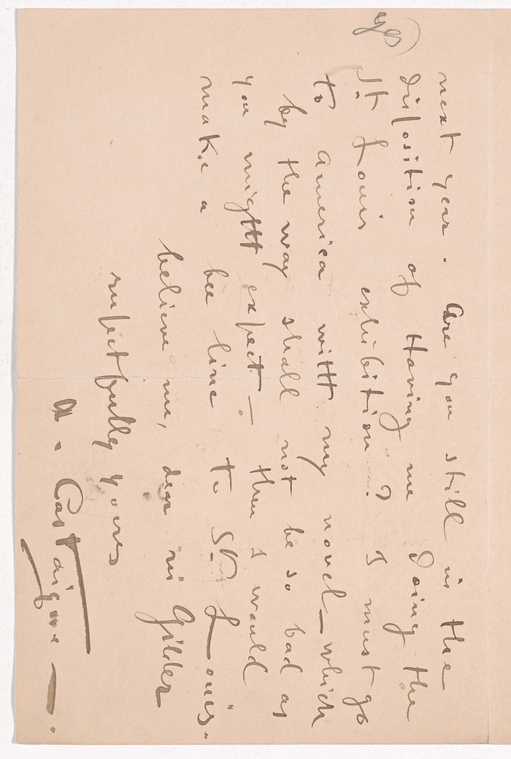 next year. Are you still in the
disposition of Having me Doing the
St Louis exhibition? I must go
to America with my novel — which
by the way shall not be so bad as
you might expect — then I would
make a bee line to St- Louis.
believe me, dear mr Gilder
respectfully yours
A. Castaigne —.
yes